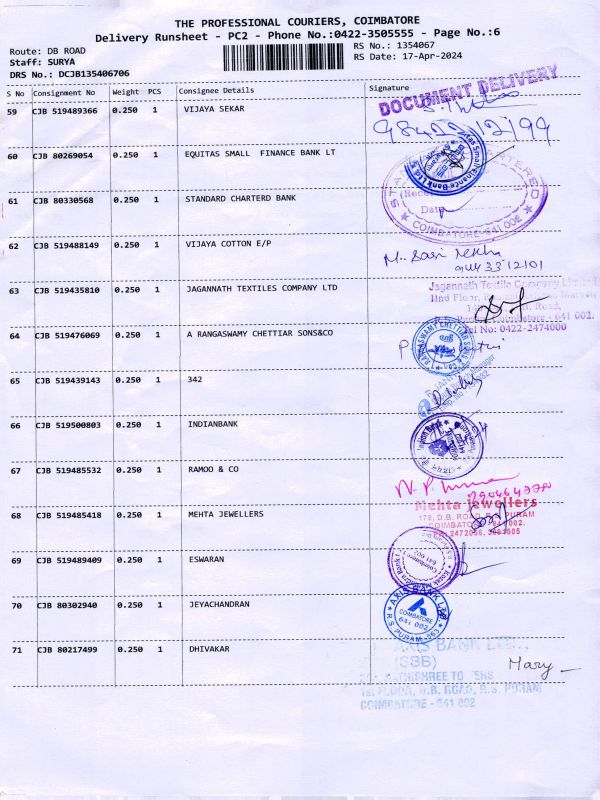 THE PROFESSIONAL COURIERS, COIMBATORE
Delivery Runsheet - PC2 - Phone No.:0422-3505555 - Page No.:6
Route: DB ROAD
RS No.: 1354067
Staff: SURYA
RS Date: 17-Apr-2024
DRS No.: DCJB135406706
S No Consignment No Weight PCS Consignee Details Signature
DOCUMENT DELIVERY
59 CJB 519489366 0.250 1 VIJAYA SEKAR
60 CJB 80269054 0.250 1 EQUITAS SMALL FINANCE BANK LT
61 CJB 80330568 0.250 1 STANDARD CHARTERD BANK
Date
COIMBATORE-641 002
62 CJB 519488149 0.250 1 VIJAYA COTTON E/P
63 CJB 519435810 0.250 1 JAGANNATH TEXTILES COMPANY LTD
Jagannath Textile Company Limited
IInd Floor,
Road,
Coimbatore - 641 002.
Tel No: 0422-2474000
64 CJB 519476069 0.250 1 A RANGASWAMY CHETTIAR SONS&CO
RANGASWAMY CHETTIAR SONS
65 CJB 519439143 0.250 1 342
66 CJB 519500803 0.250 1 INDIANBANK
67 CJB 519485532 0.250 1 RAMOO & CO
68 CJB 519485418 0.250 1 MEHTA JEWELLERS
Mehta jewellers
178, D.B. ROAD, R.S. PURAM
COIMBATORE - 641 002.
69 CJB 519489409 0.250 1 ESWARAN
70 CJB 80302940 0.250 1 JEYACHANDRAN
AXIS BANK LTD
COIMBATORE
641 002
R S PURAM
71 CJB 80217499 0.250 1 DHIVAKAR
AXIS BANK LTD
(SBB)
Mary
1st FLOOR, D.B. ROAD, R.S. PURAM
COIMBATORE - 641 002